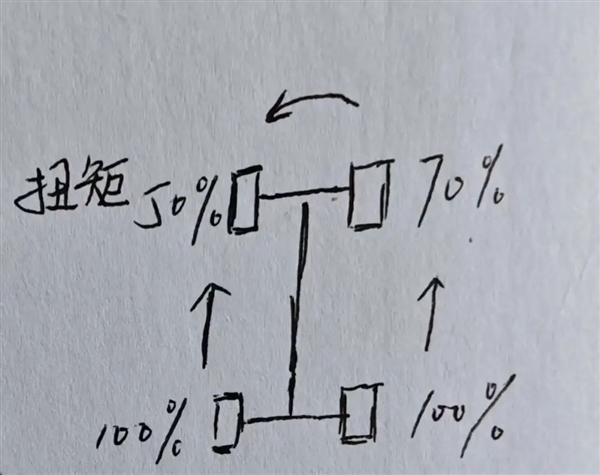 扭矩 50% 70%
100% 100%